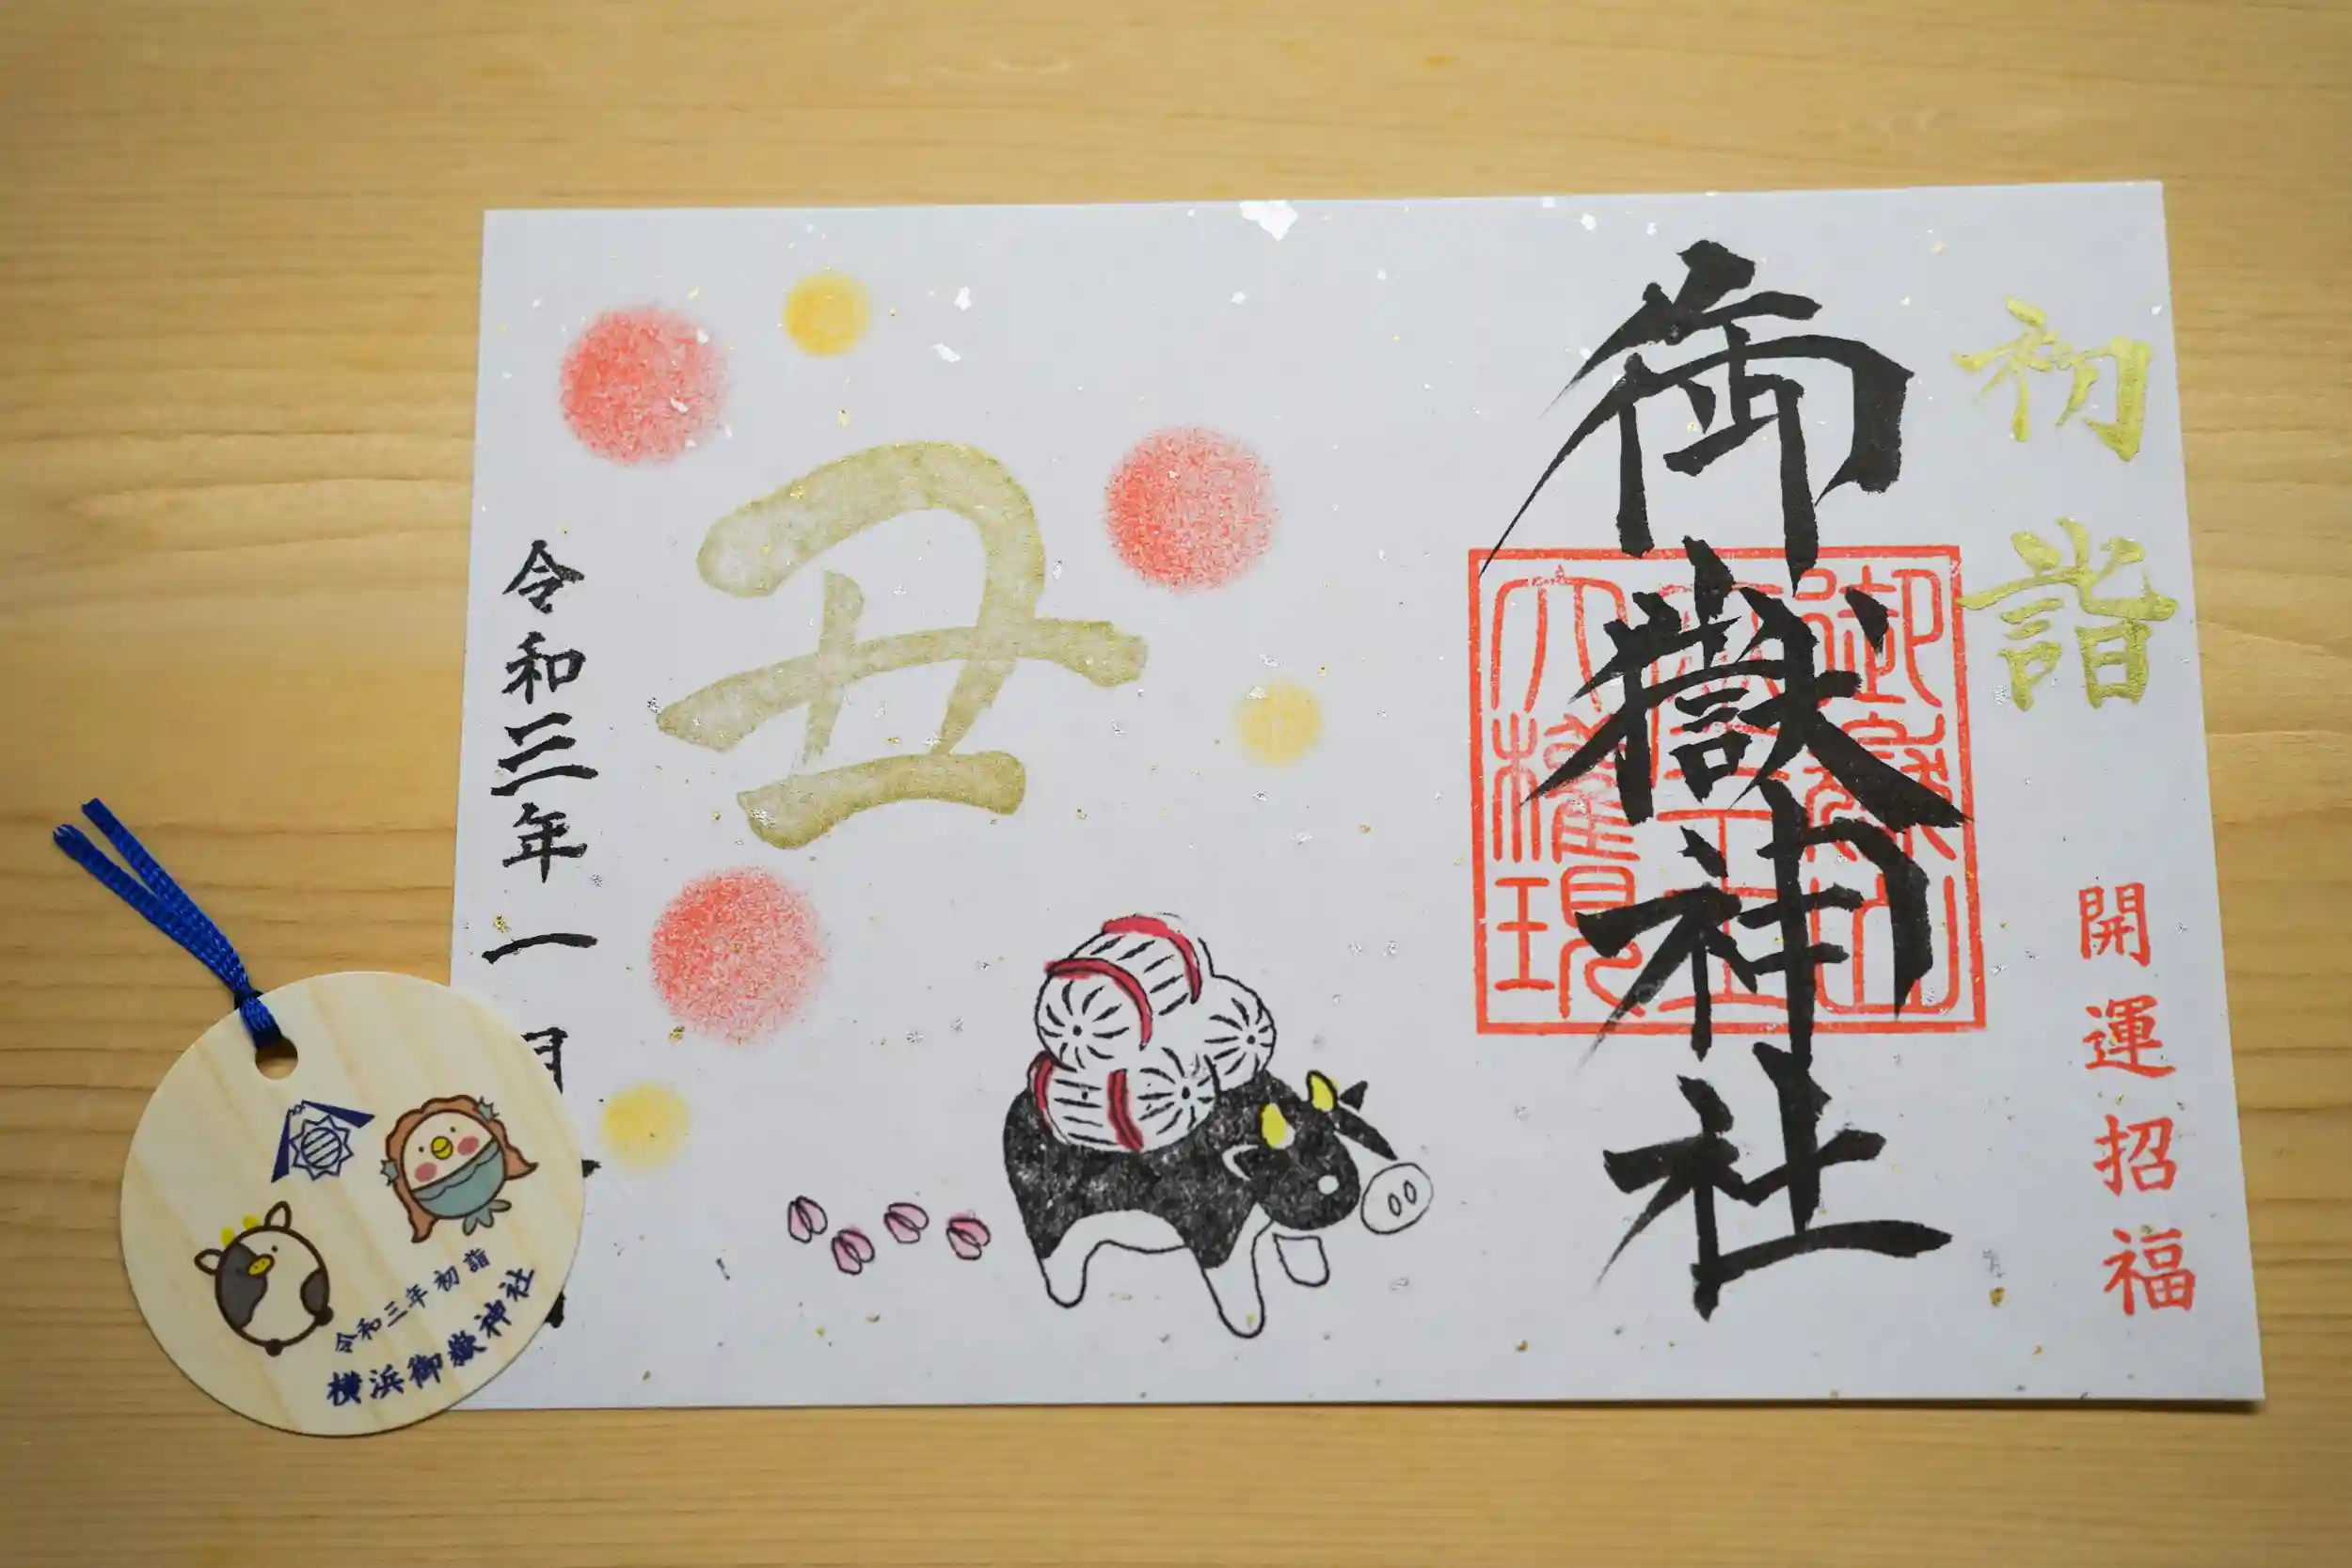 初詣
開運招福
御嶽神社
御嶽山
大権現
丑
令和三年一月
令和三年初詣
横浜御嶽神社